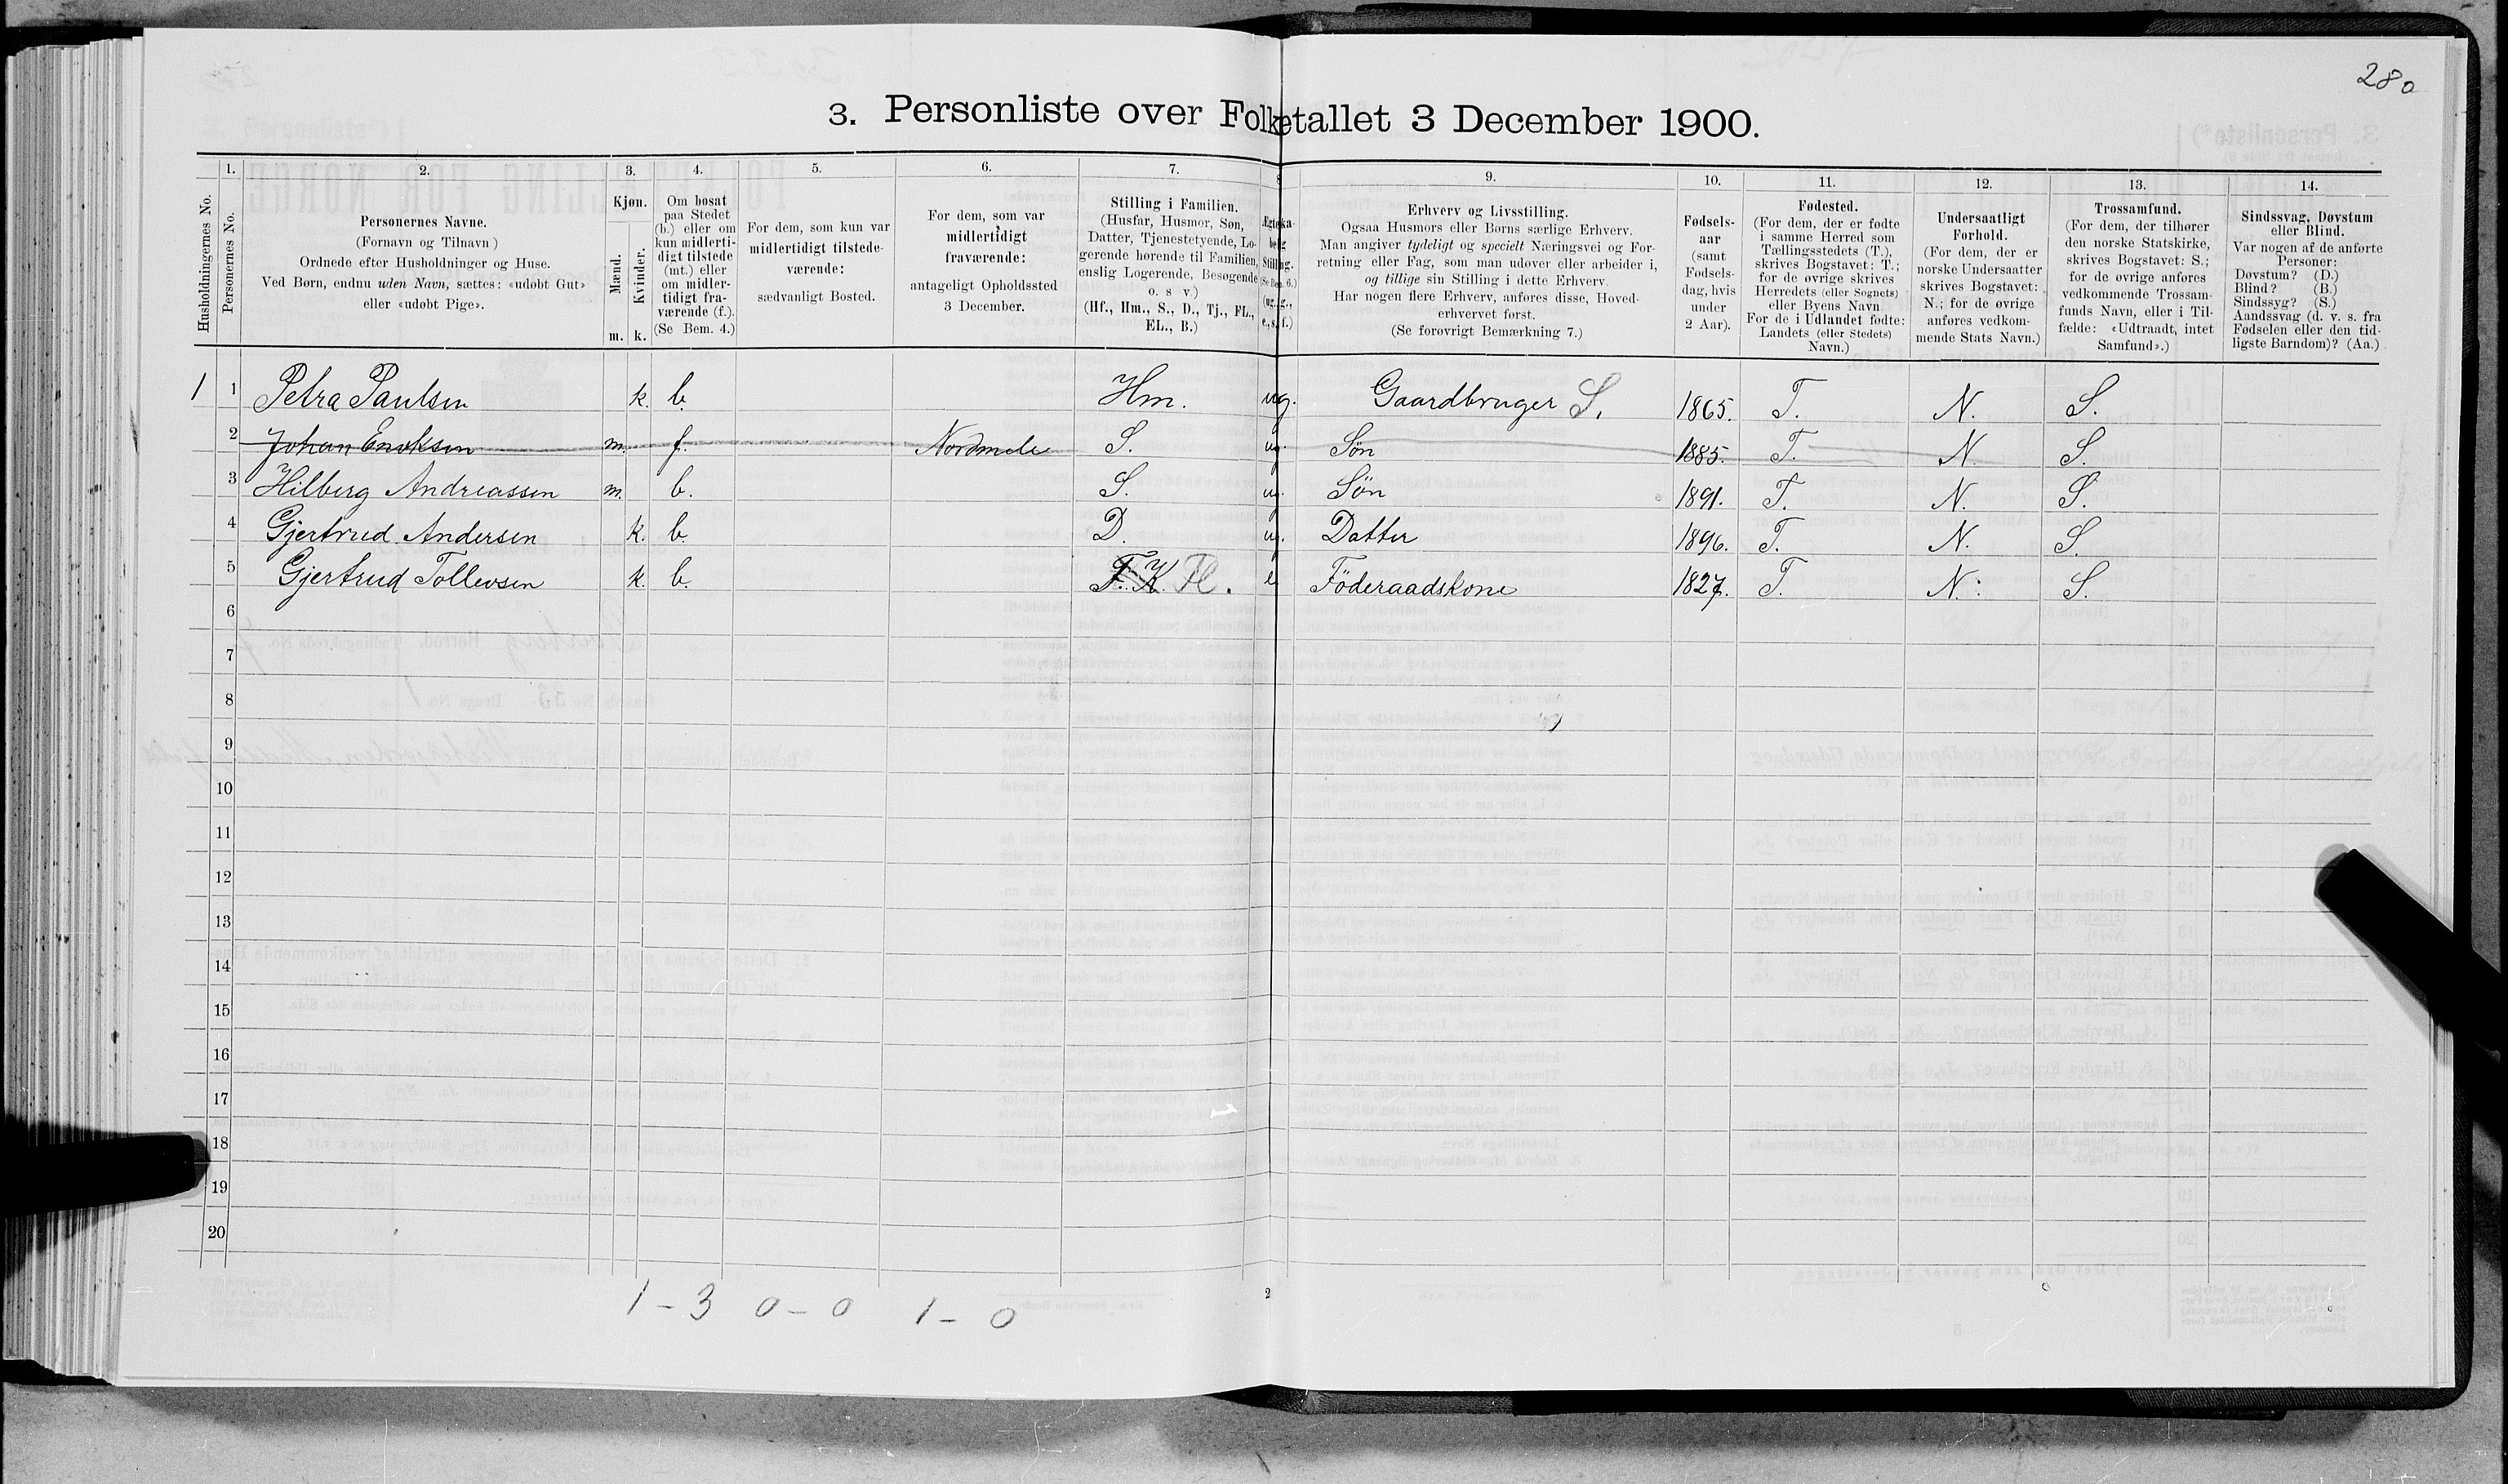 280
3. Personliste over Folketallet 3 December 1900.
Husholdningernes No.
1.
Personernes No.
2.
Personernes Navne.
(Fornavn og Tilnavn)
Ordnede efter Husholdninger og Huse.
Ved Børn, endnu uden Navn, sættes: «udøbt Gut»
eller «udøbt Pige».
3.
Kjøn.
Mænd.
Kvinder.
m. k.
4.
Om bosat
paa Stedet
(b.) eller om
kun midlerti-
digt tilstede
(mt.) eller
om midler-
tidigt fra-
værende (f.).
(Se Bem. 4.)
5.
For dem, som kun var
midlertidigt tilstede-
værende:
sædvanligt Bosted.
6.
For dem, som var
midlertidigt
fraværende:
antageligt Opholdssted
3 December.
7.
Stilling i Familien.
(Husfar, Husmor, Søn,
Datter, Tjenestetyende, Lo-
gerende hørende til Familien,
enslig Logerende, Besøgende
o. s v.)
(Hf., Hm., S., D., Tj., FL.,
EL., B.)
9.
Erhverv og Livsstilling.
Ogsaa Husmors eller Børns særlige Erhverv.
Man angiver tydeligt og specielt Næringsvei og For-
retning eller Fag, som man udøver eller arbeider i,
og tillige sin Stilling i dette Erhverv.
Har nogen flere Erhverv, anføres disse, Hoved-
erhvervet først.
(Se forøvrigt Bemærkning 7.)
10.
Fødsels-
aar
(samt
Fødsels-
dag, hvis
under
2 Aar).
11.
Fødested.
(For dem, der er fødte
i samme Herred som
Tællingsstedets (T.),
skrives Bogstavet: T.;
for de øvrige skrives
Herredets (eller Sognets)
eller Byens Navn.
For de i Udlandet fødte:
Landets (eller Stedets)
Navn.)
12.
Undersaatligt
Forhold.
(For dem, der er
norske Undersaatter
skrives Bogstavet:
N.; for de øvrige
anføres vedkom-
mende Stats Navn.)
13.
Trossamfund.
(For dem, der tilhører
den norske Statskirke,
skrives Bogstavet: S.;
for de øvrige anføres
vedkommende Trossam-
funds Navn, eller i Til-
fælde: «Udtraadt, intet
Samfund».)
14.
Sindssvag, Døvstum
eller Blind.
Var nogen af de anførte
Personer:
Døvstum? (D.)
Blind? (B.)
Sindssyg? (S.)
Aandssvag (d. v. s. fra
Fødselen eller den tid-
ligste Barndom)? (Aa.)
1 1 Petra Paulsen k. b. Hm. ug. Gaardbruger S. 1865. T. N. S.
2 Johan Eriksen m. f. Nordmele S. ug. Søn 1885. T. N. S.
3 Hilberg Andreassen m. b. S. ug. Søn 1891. T. N. S.
4 Gjertrud Andersen k. b. D. ug. Datter 1896. T. N. S.
5 Gjertrud Tollevsen k. b. F. K. Fl. e Föderaadskone 1827. T. N. S.
6
7
8
9
10
11
12
13
14
15
16
17
18
19
20
1 - 3 0 - 0 1 - 0
2